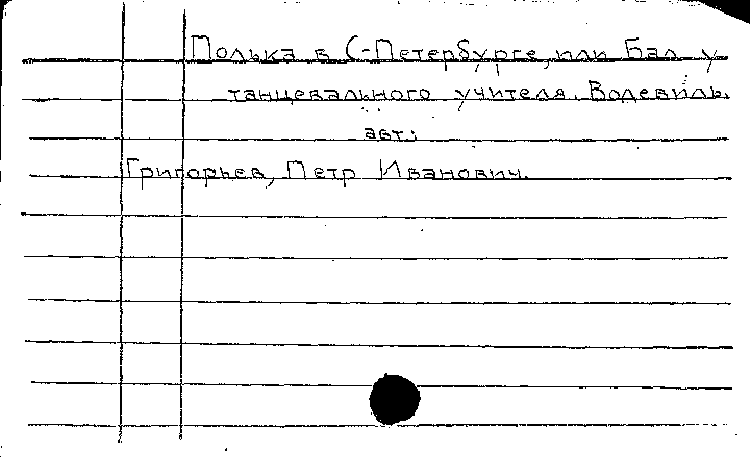 Полька в С-Петербурге, или Бал у
танцевального учителя. Водевиль.
авт:
Григорьев, Петр Иванович.